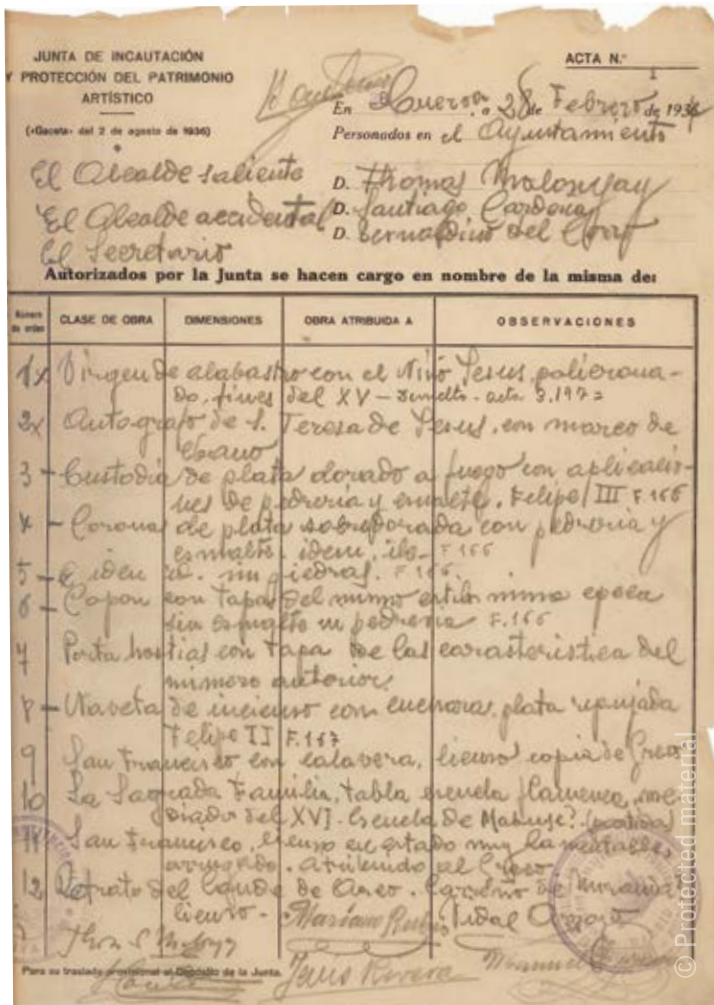 JUNTA DE INCAUTACIÓN
Y PROTECCIÓN DEL PATRIMONIO
ARTÍSTICO
(«Gaceta» del 2 de agosto de 1936)
ACTA N.º
1
En Cuerva a 28 de Febrero de 193
Personados en el Ayuntamiento
El Alcalde saliente D. Thomas Malonyay
El Alcalde accidental D. Santiago Cardona
El Secretario D. Bernardino del
Autorizados por la Junta se hacen cargo en nombre de la misma de:
Número de orden CLASE DE OBRA DIMENSIONES OBRA ATRIBUIDA A OBSERVACIONES
1x Virgen de alabastro con el Niño Jesus, policroma-
do, fines del XV - acta 3.197
2x Autografo de S. Teresa de Jesus, con marco de
ebano
3 - Custodia de plata dorado a fuego con aplicacio-
nes de pedreria y esmalte. Felipe III F.166
4 - Corona de plata sobredorada con pedreria y
esmalte. idem, F.166
5 - idem id. sin piedras. F.166
6 - Copon con tapa del mismo estilo misma epoca
sin esmalte ni pedreria F.166
7 Porta hostias con tapa de las caracteristica del
numero anterior.
8 - Naveta de incienso con cuchara, plata repujada
Felipe II F.167
9 San Francisco con calavera, lienzo copia de Greco
10 La Sagrada Familia, tabla escuela flamenca, me-
diados del XVI. Escuela de Mabuse? (partida)
11 San Francisco, lienzo en estado muy lamentable,
arrugado. atribuido al Greco
12 Retrato del Conde de Arco. Carreño de Miranda
lienzo.
Mariano Rubio Vidal Arroyo
Para su traslado provisional al Depósito de la Junta.
Jesus Rivera Manuel
© Protected material